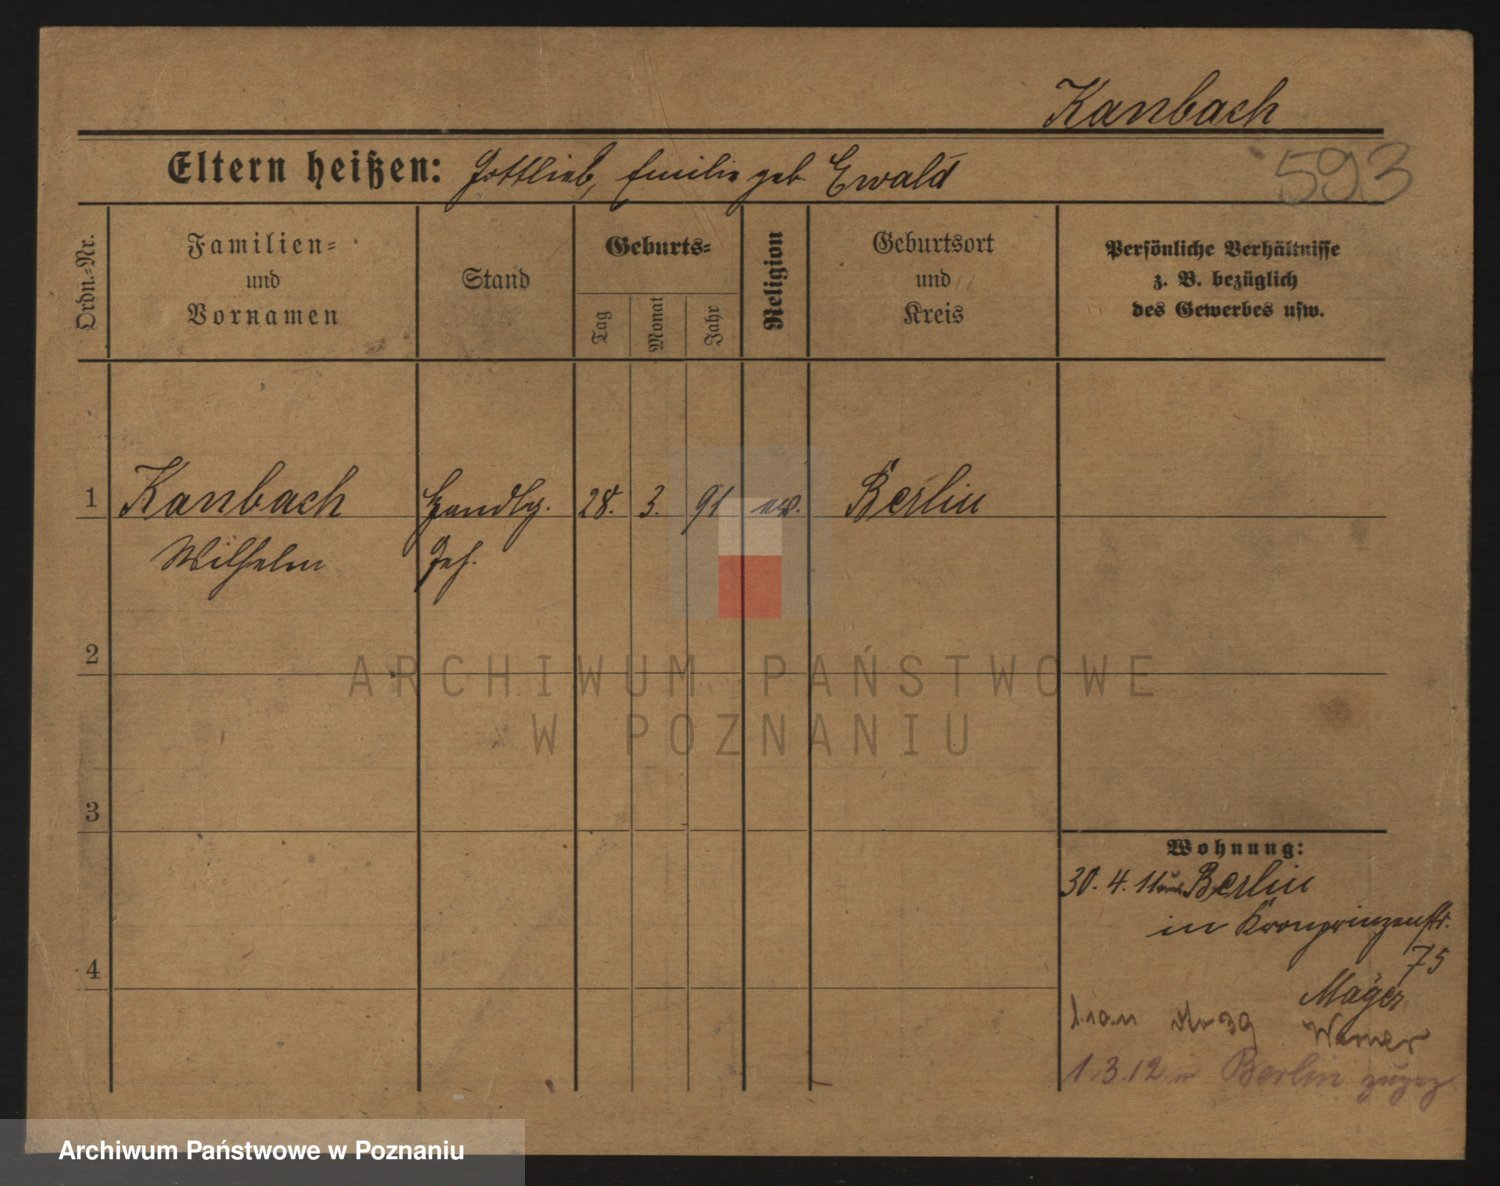 Kanbach
Eltern heißen: Gottlieb, Emilie geb. Ewald
593
Ordn.-Nr.
Familien-
und
Vornamen
Stand
Geburts-
Tag
Monat
Jahr
Religion
Geburtsort
und
Kreis
Persönliche Verhältnisse
z. B. bezüglich
des Gewerbes usw.
1 Kanbach Handlg. 28. 3. 91 ev. Berlin
Wilhelm Geh.
2
3
4
Wohnung:
30. 4. 11 aus Berlin
in Kronprinzenstr.
75
Mager
1.10.11 39 Werner
1.3.12 Berlin
ARCHIWUM PAŃSTWOWE
W POZNANIU
Archiwum Państwowe w Poznaniu